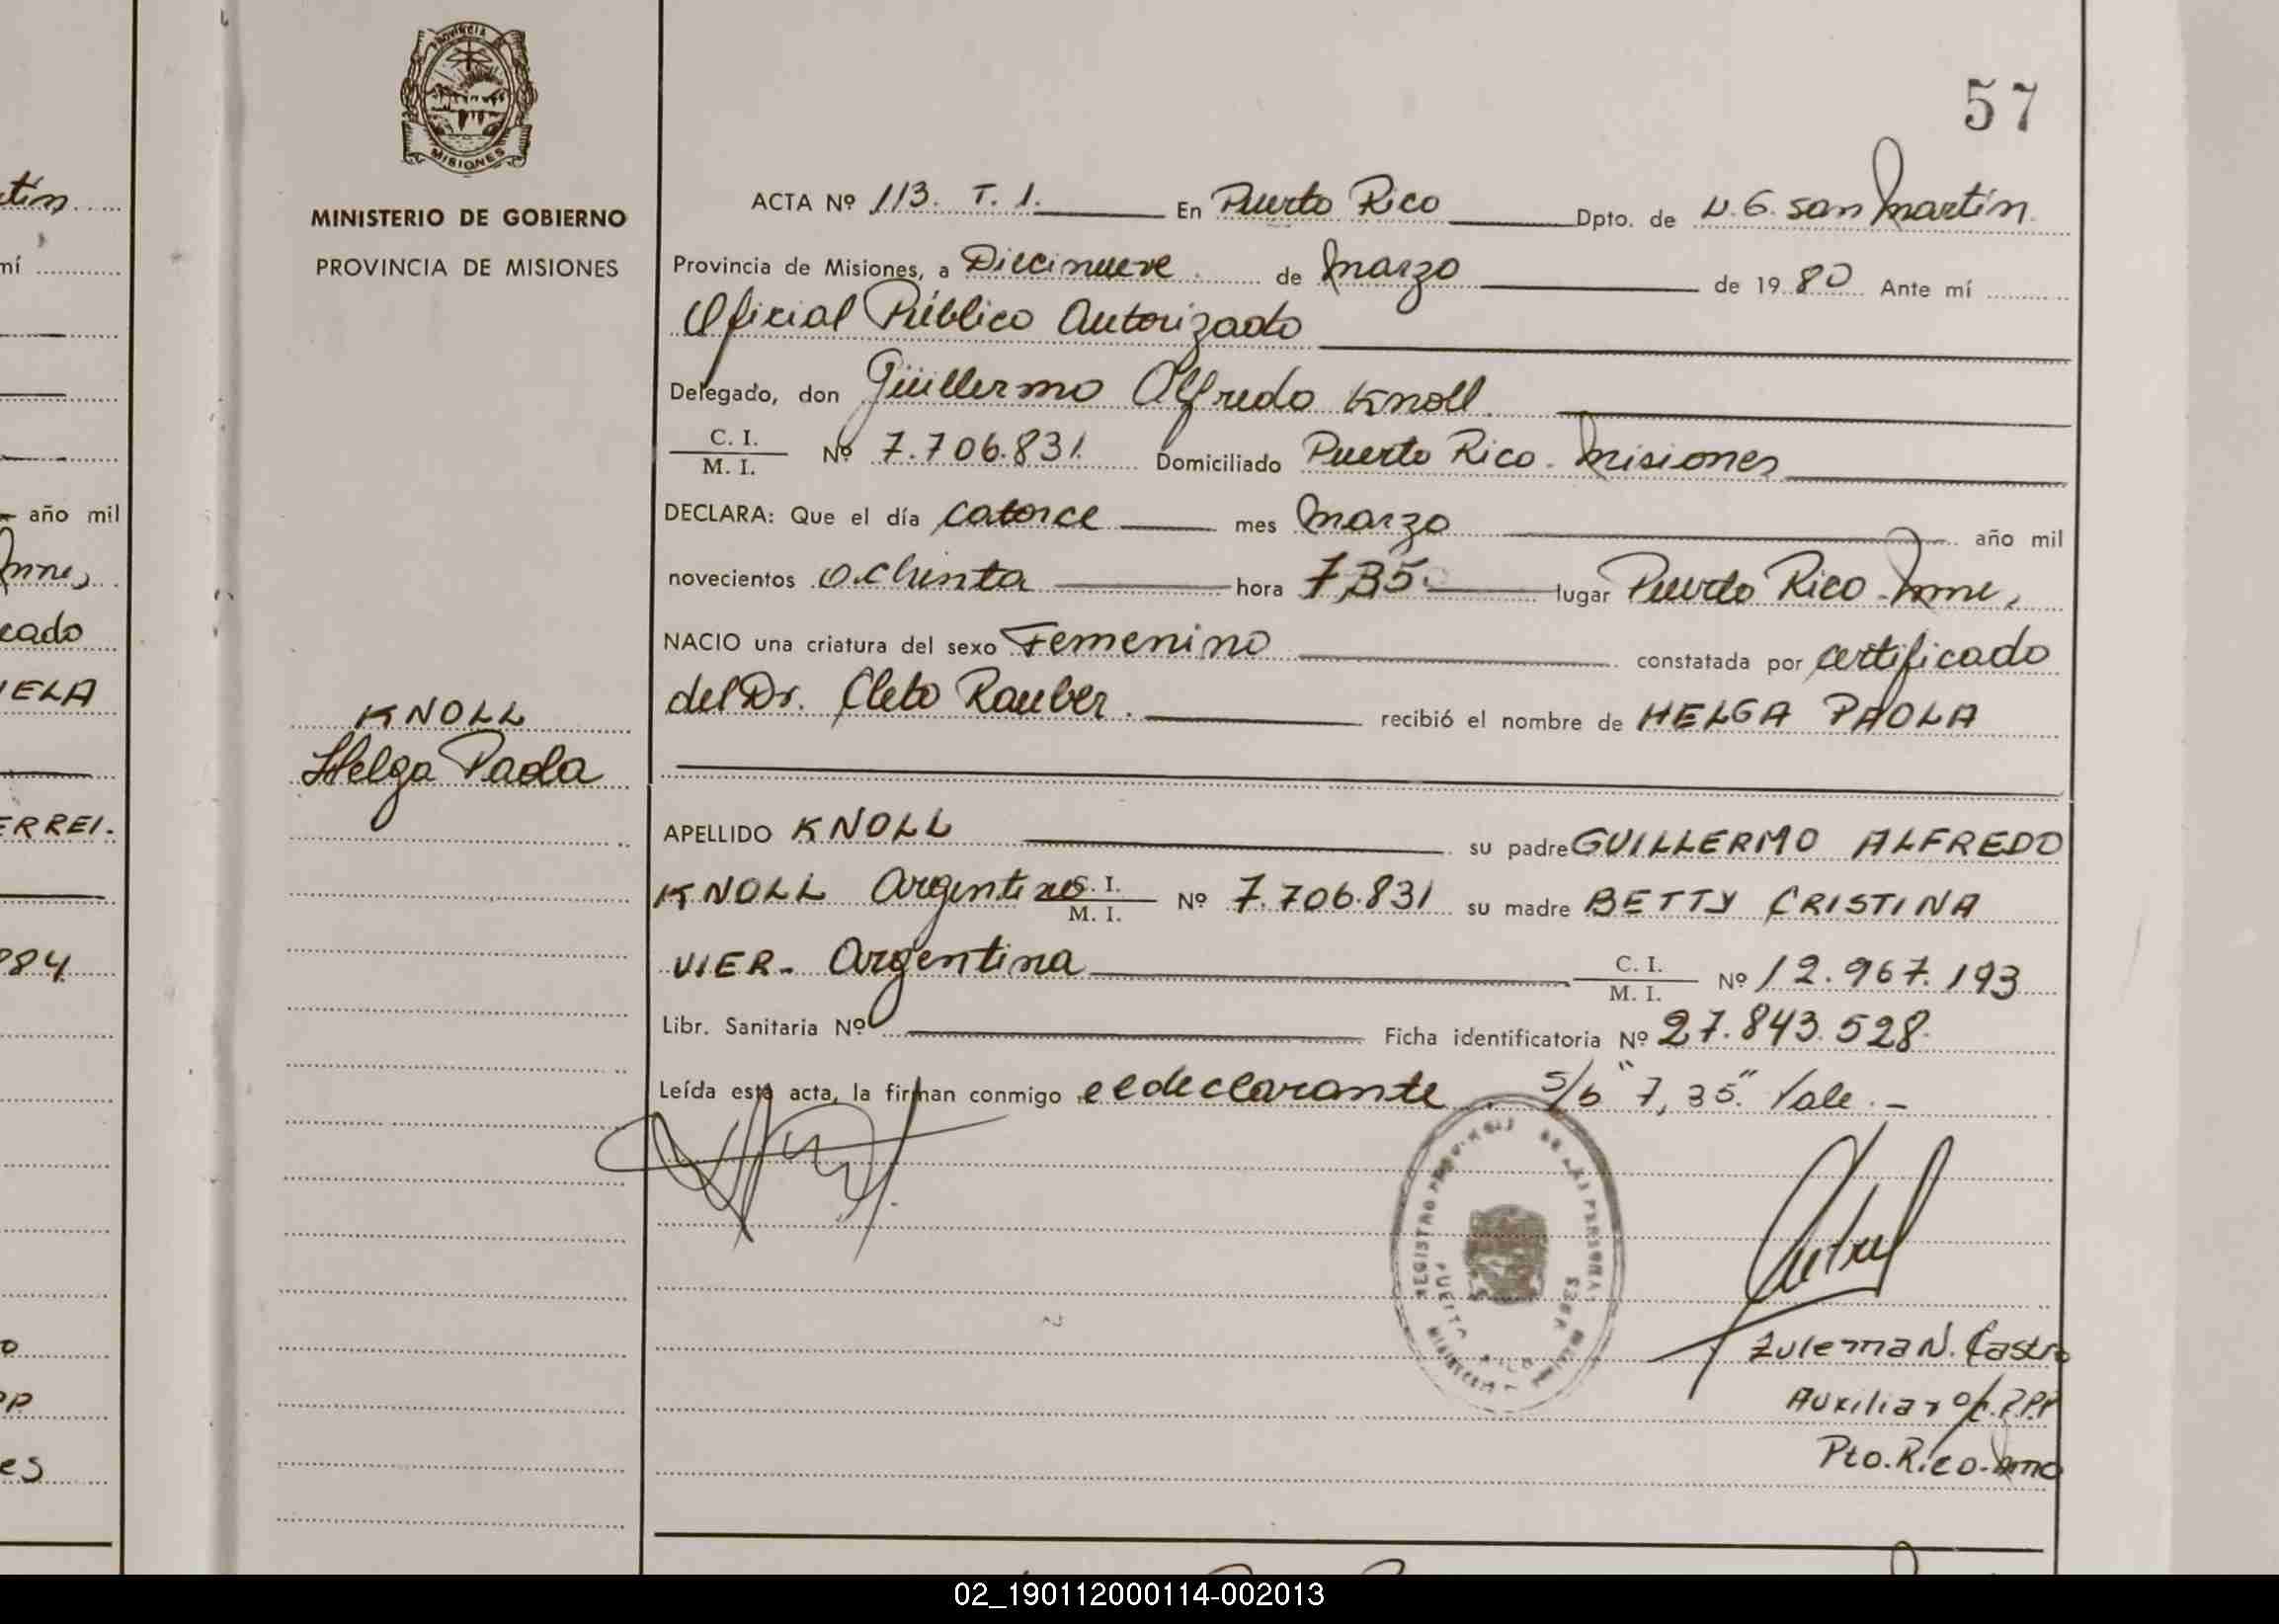 57
PROVINCIA
MISIONES
MINISTERIO DE GOBIERNO
PROVINCIA DE MISIONES
ACTA Nº 113. T. 1. En Puerto Rico Dpto. de L. G. San Martín
Provincia de Misiones, a Diecinueve de Marzo de 1980 Ante mí
Oficial Público Autorizado
Delegado, don Güillermo Alfredo Knoll
C. I.
M. I. Nº 7.706.831 Domiciliado Puerto Rico - Misiones
DECLARA: Que el día catorce mes Marzo año mil
novecientos ochenta hora 7,35 lugar Puerto Rico - Mnes,
NACIO una criatura del sexo Femenino constatada por certificado
del Dr. Cleto Rauber. recibió el nombre de HELGA PAOLA
KNOLL
Helga Paola
APELLIDO KNOLL su padre GUILLERMO ALFREDO
KNOLL Argentino C. I. M. I. Nº 7.706.831 su madre BETTY CRISTINA
VIER- Argentina C. I. M. I. Nº 12.967.193
Libr. Sanitaria Nº Ficha identificatoria Nº 27.843.528
Leída esta acta, la firman conmigo el declarante S/b "7,35" Vale.-
REGISTRO PROVINCIAL DE LAS PERSONAS
PUERTO RICO
MISIONES
Zulema N. Castro
Auxiliar Of. P.P.P
Pto. Rico - Mnes
tín
mí
año mil
Mnes,
cado
IELA
ERREI.
984
o
PP
es
02_190112000114-002013